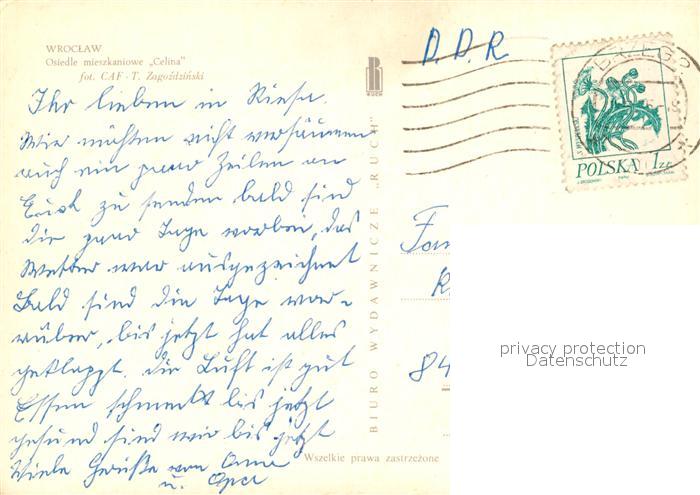 WROCŁAW
Osiedle mieszkaniowe „Celina”
fot. CAF - T. Zagoździński
Ihr lieben in Riesa.
Wir möchten nicht versäumen
auch ein paar Zeilen an
Euch zu senden bald sind
die paar Tage vorbei, das
Wetter war ausgezeichnet
Bald sind die Tage vor=
rüber, bis jetzt hat alles
geklappt. die Luft ist gut
Essen schmeckt bis jetzt
gesund sind wir bis jetzt
Viele Grüße von Oma
u. Opa
RUCH
BIURO WYDAWNICZE „RUCH”
Wszelkie prawa zastrzeżone
D.D.R
POLSKA 1 ZŁ
Fam
R
84
privacy protection
Datenschutz